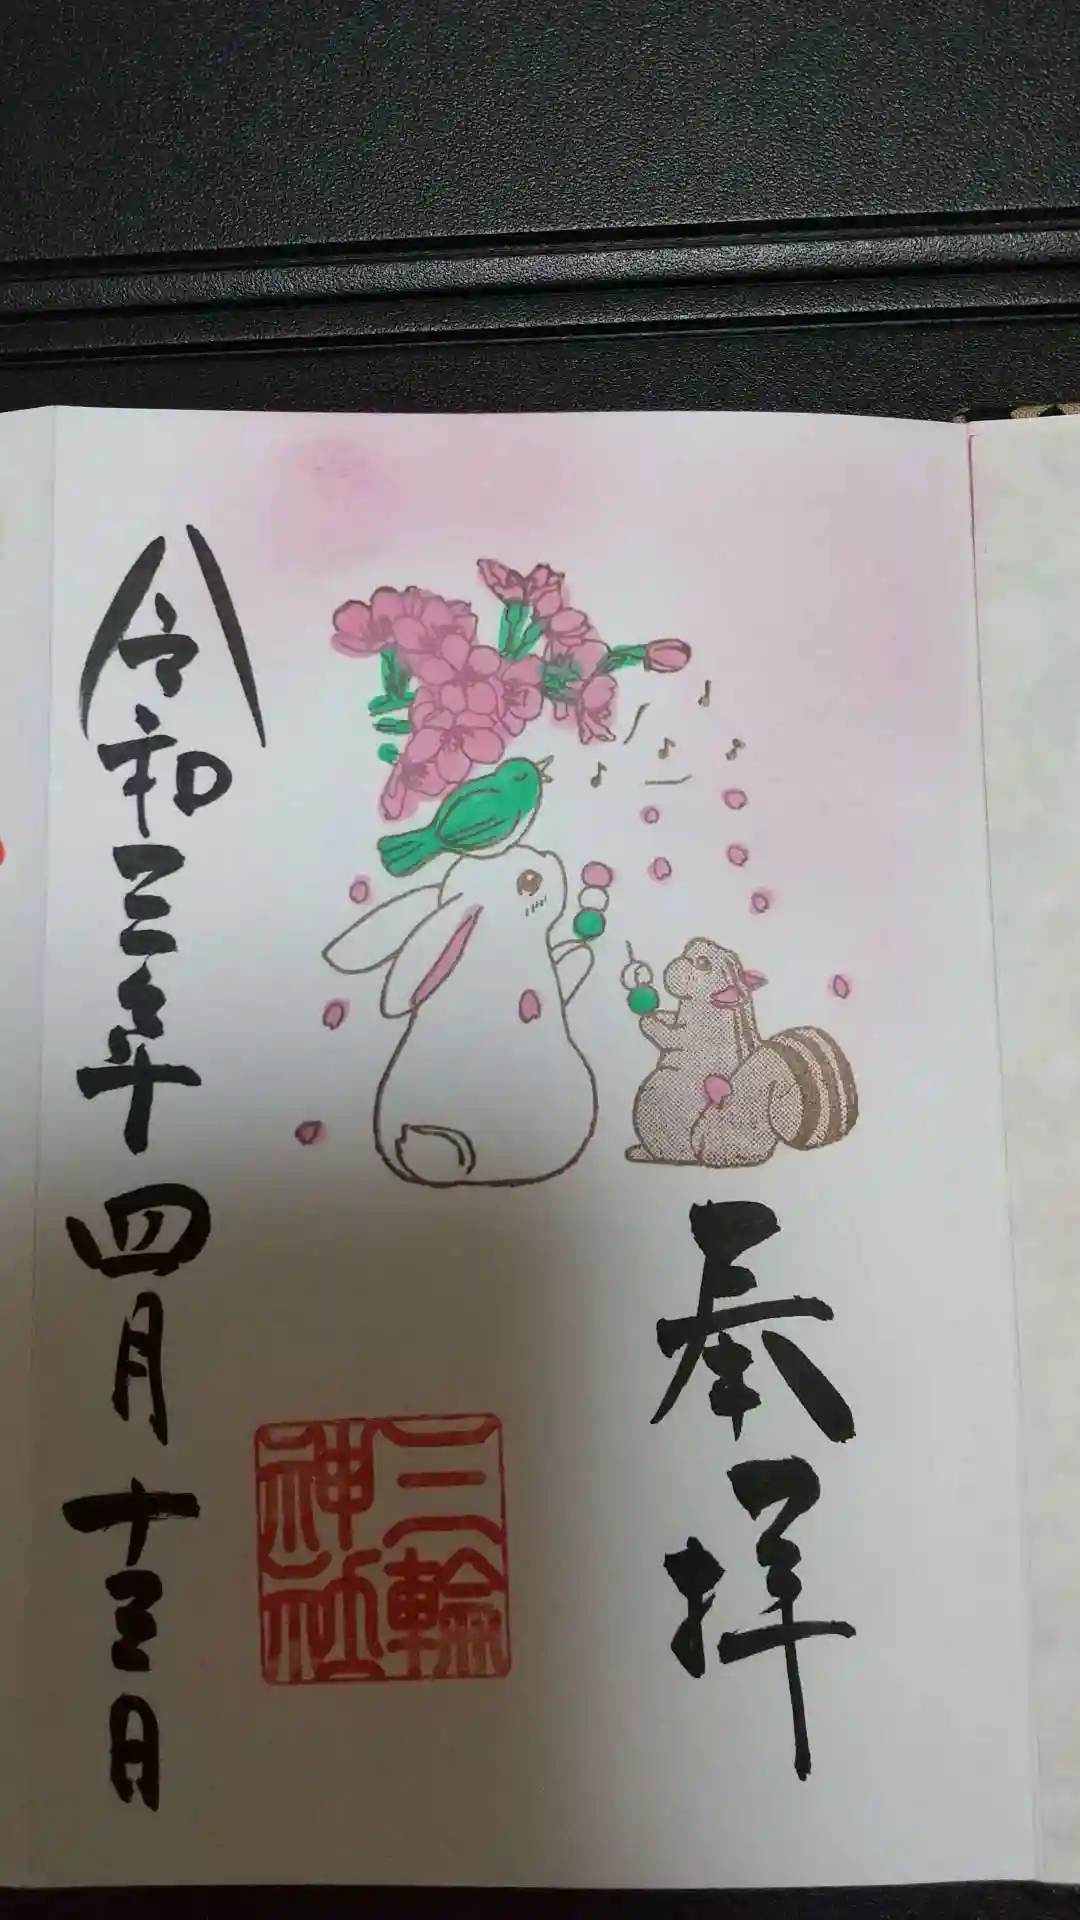 奉拝
三輪
神社
令和三年四月十三日